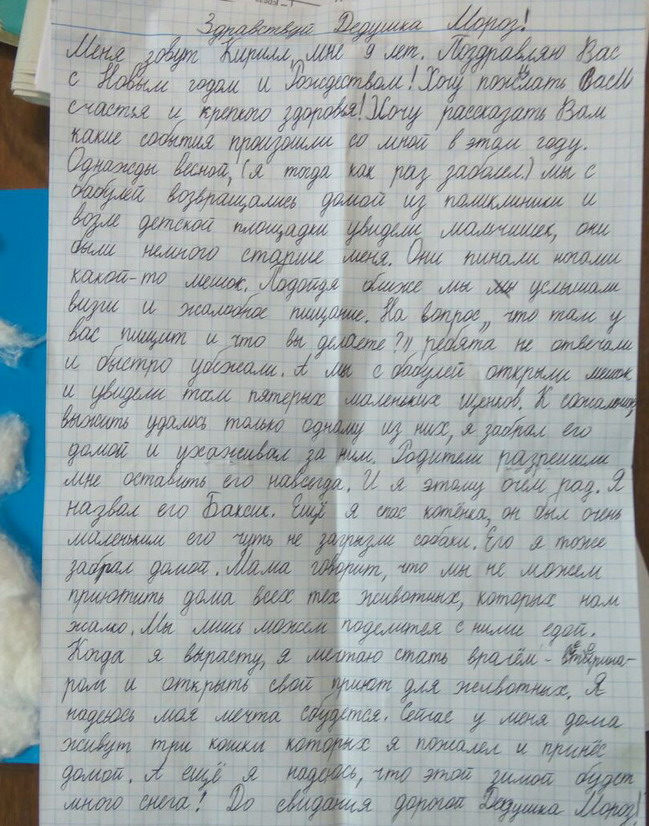 Здравствуй Дедушка Мороз!
Меня зовут Кирилл, мне 9 лет. Поздравляю Вас
с Новым годом и Рождеством! Хочу пожелать Вам
счастья и крепкого здоровья! Хочу рассказать Вам
какие события произошли со мной в этом году.
Однажды весной, (я тогда как раз заболел.) мы с
бабулей возвращались домой из поликлиники и
возле детской площадки увидели мальчишек, они
были немного старше меня. Они пинали ногами
какой-то мешок. Подойдя ближе мы услышали
визги и жалобное пищание. На вопрос „что там у
вас пищит и что вы делаете?" ребята не отвечали
и быстро убежали. А мы с бабулей открыли мешок
и увидели там пятерых маленьких щенков. К сожалению
выжить удалось только одному из них, я забрал его
домой и ухаживал за ним. Родители разрешили
мне оставить его навсегда. И я этому очень рад. Я
назвал его Баксик. Ещё я спас котёнка, он был очень
маленьким его чуть не загрызли собаки. Его я тоже
забрал домой. Мама говорит, что мы не можем
приютить дома всех тех животных, которых нам
жалко. Мы лишь можем поделится с ними едой.
Когда я вырасту, я мечтаю стать врачём - ветерина-
ром и открыть свой приют для животных. Я
надеюсь моя мечта сбудется. Сейчас у меня дома
живут три кошки которых я пожалел и принёс
домой. А ещё я надеюсь, что этой зимой будет
много снега! До свидания дорогой Дедушка Мороз!